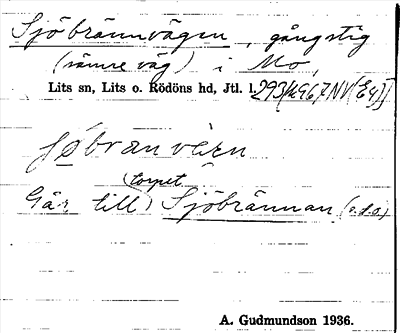 Sjöbrännvägen, gångstig
(sämre väg) i Mo,
Lits sn, Lits o. Rödöns hd, Jtl. l.
jøbranveien
(torpet
Går till) Sjöbrännan (s.d.o.)
A. Gudmundson 1936.